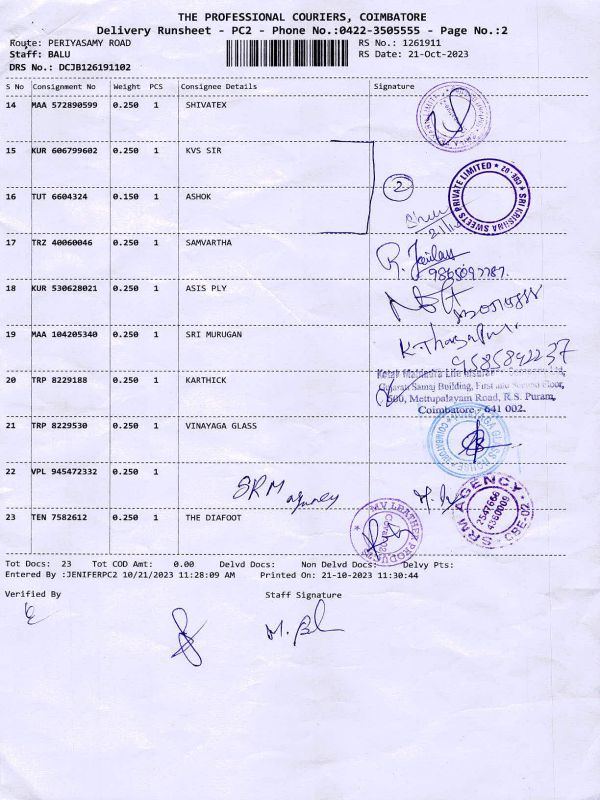 THE PROFESSIONAL COURIERS, COIMBATORE
Delivery Runsheet - PC2 - Phone No.:0422-3505555 - Page No.:2
Route: PERIYASAMY ROAD
RS No.: 1261911
Staff: BALU
RS Date: 21-Oct-2023
DRS No.: DCJB126191102
S No Consignment No Weight PCS Consignee Details Signature
14 MAA 572890599 0.250 1 SHIVATEX
15 KUR 606799602 0.250 1 KVS SIR
SRI KRISHNA SWEETS PRIVATE LIMITED ★ CBE-02 ★
2
16 TUT 6604324 0.150 1 ASHOK
17 TRZ 40060046 0.250 1 SAMVARTHA
18 KUR 530628021 0.250 1 ASIS PLY
19 MAA 104205340 0.250 1 SRI MURUGAN
9585892237
Kotak Mahindra Life
20 TRP 8229188 0.250 1 KARTHICK
Gujarati Samaj Building, First and Second Floor,
Mettupalayam Road, R.S. Puram,
Coimbatore - 641 002.
21 TRP 8229530 0.250 1 VINAYAGA GLASS
VINAYAGA GLASS HOUSE COIMBATORE
22 VPL 945472332 0.250 1
SRM agency
SRM AGENCY CBE-02
2547666
4380009
23 TEN 7582612 0.250 1 THE DIAFOOT
MV LEATHER PRODUCTS
Tot Docs: 23 Tot COD Amt: 0.00 Delvd Docs: Non Delvd Docs: Delvy Pts:
Entered By :JENIFERPC2 10/21/2023 11:28:09 AM Printed On: 21-10-2023 11:30:44
Verified By Staff Signature